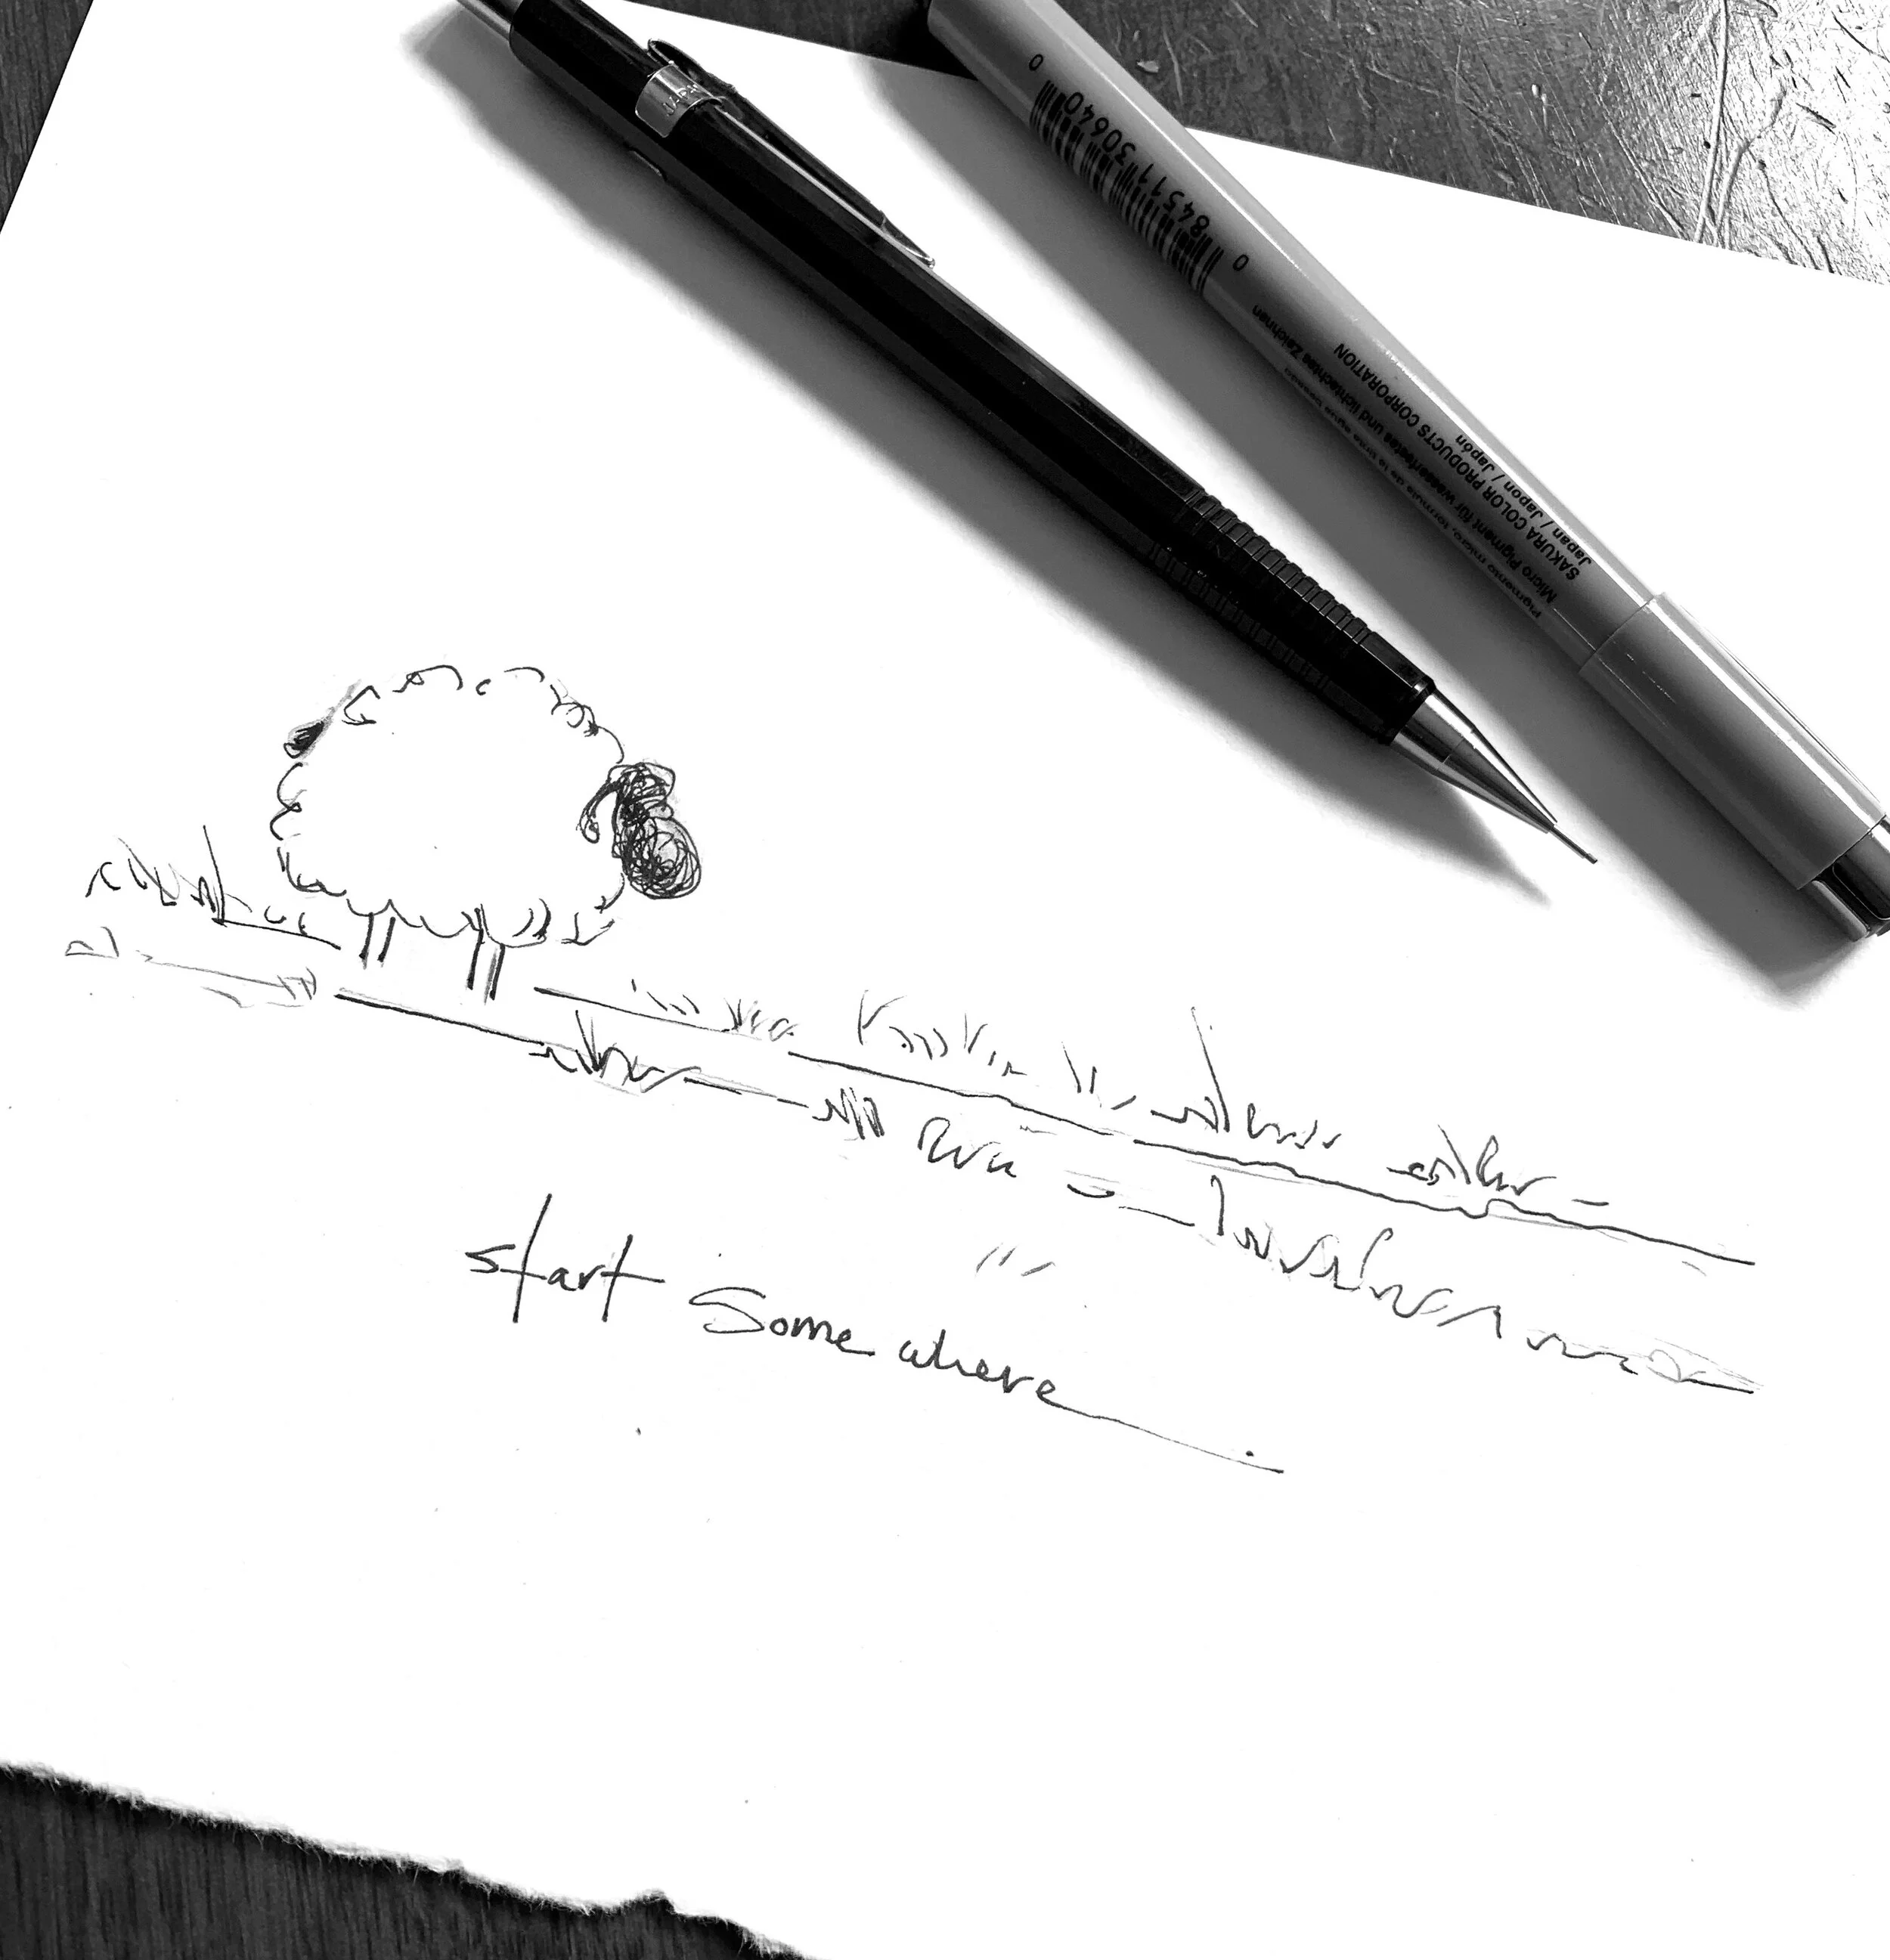 JAPAN
0 84511 30640 0
Pigmento micro, formula de la tinta
Micro Pigment für wasserfestes und lichtechtes Zeichnen
SAKURA COLOR PRODUCTS CORPORATION
Japan / Japon / Japón
start Some where.